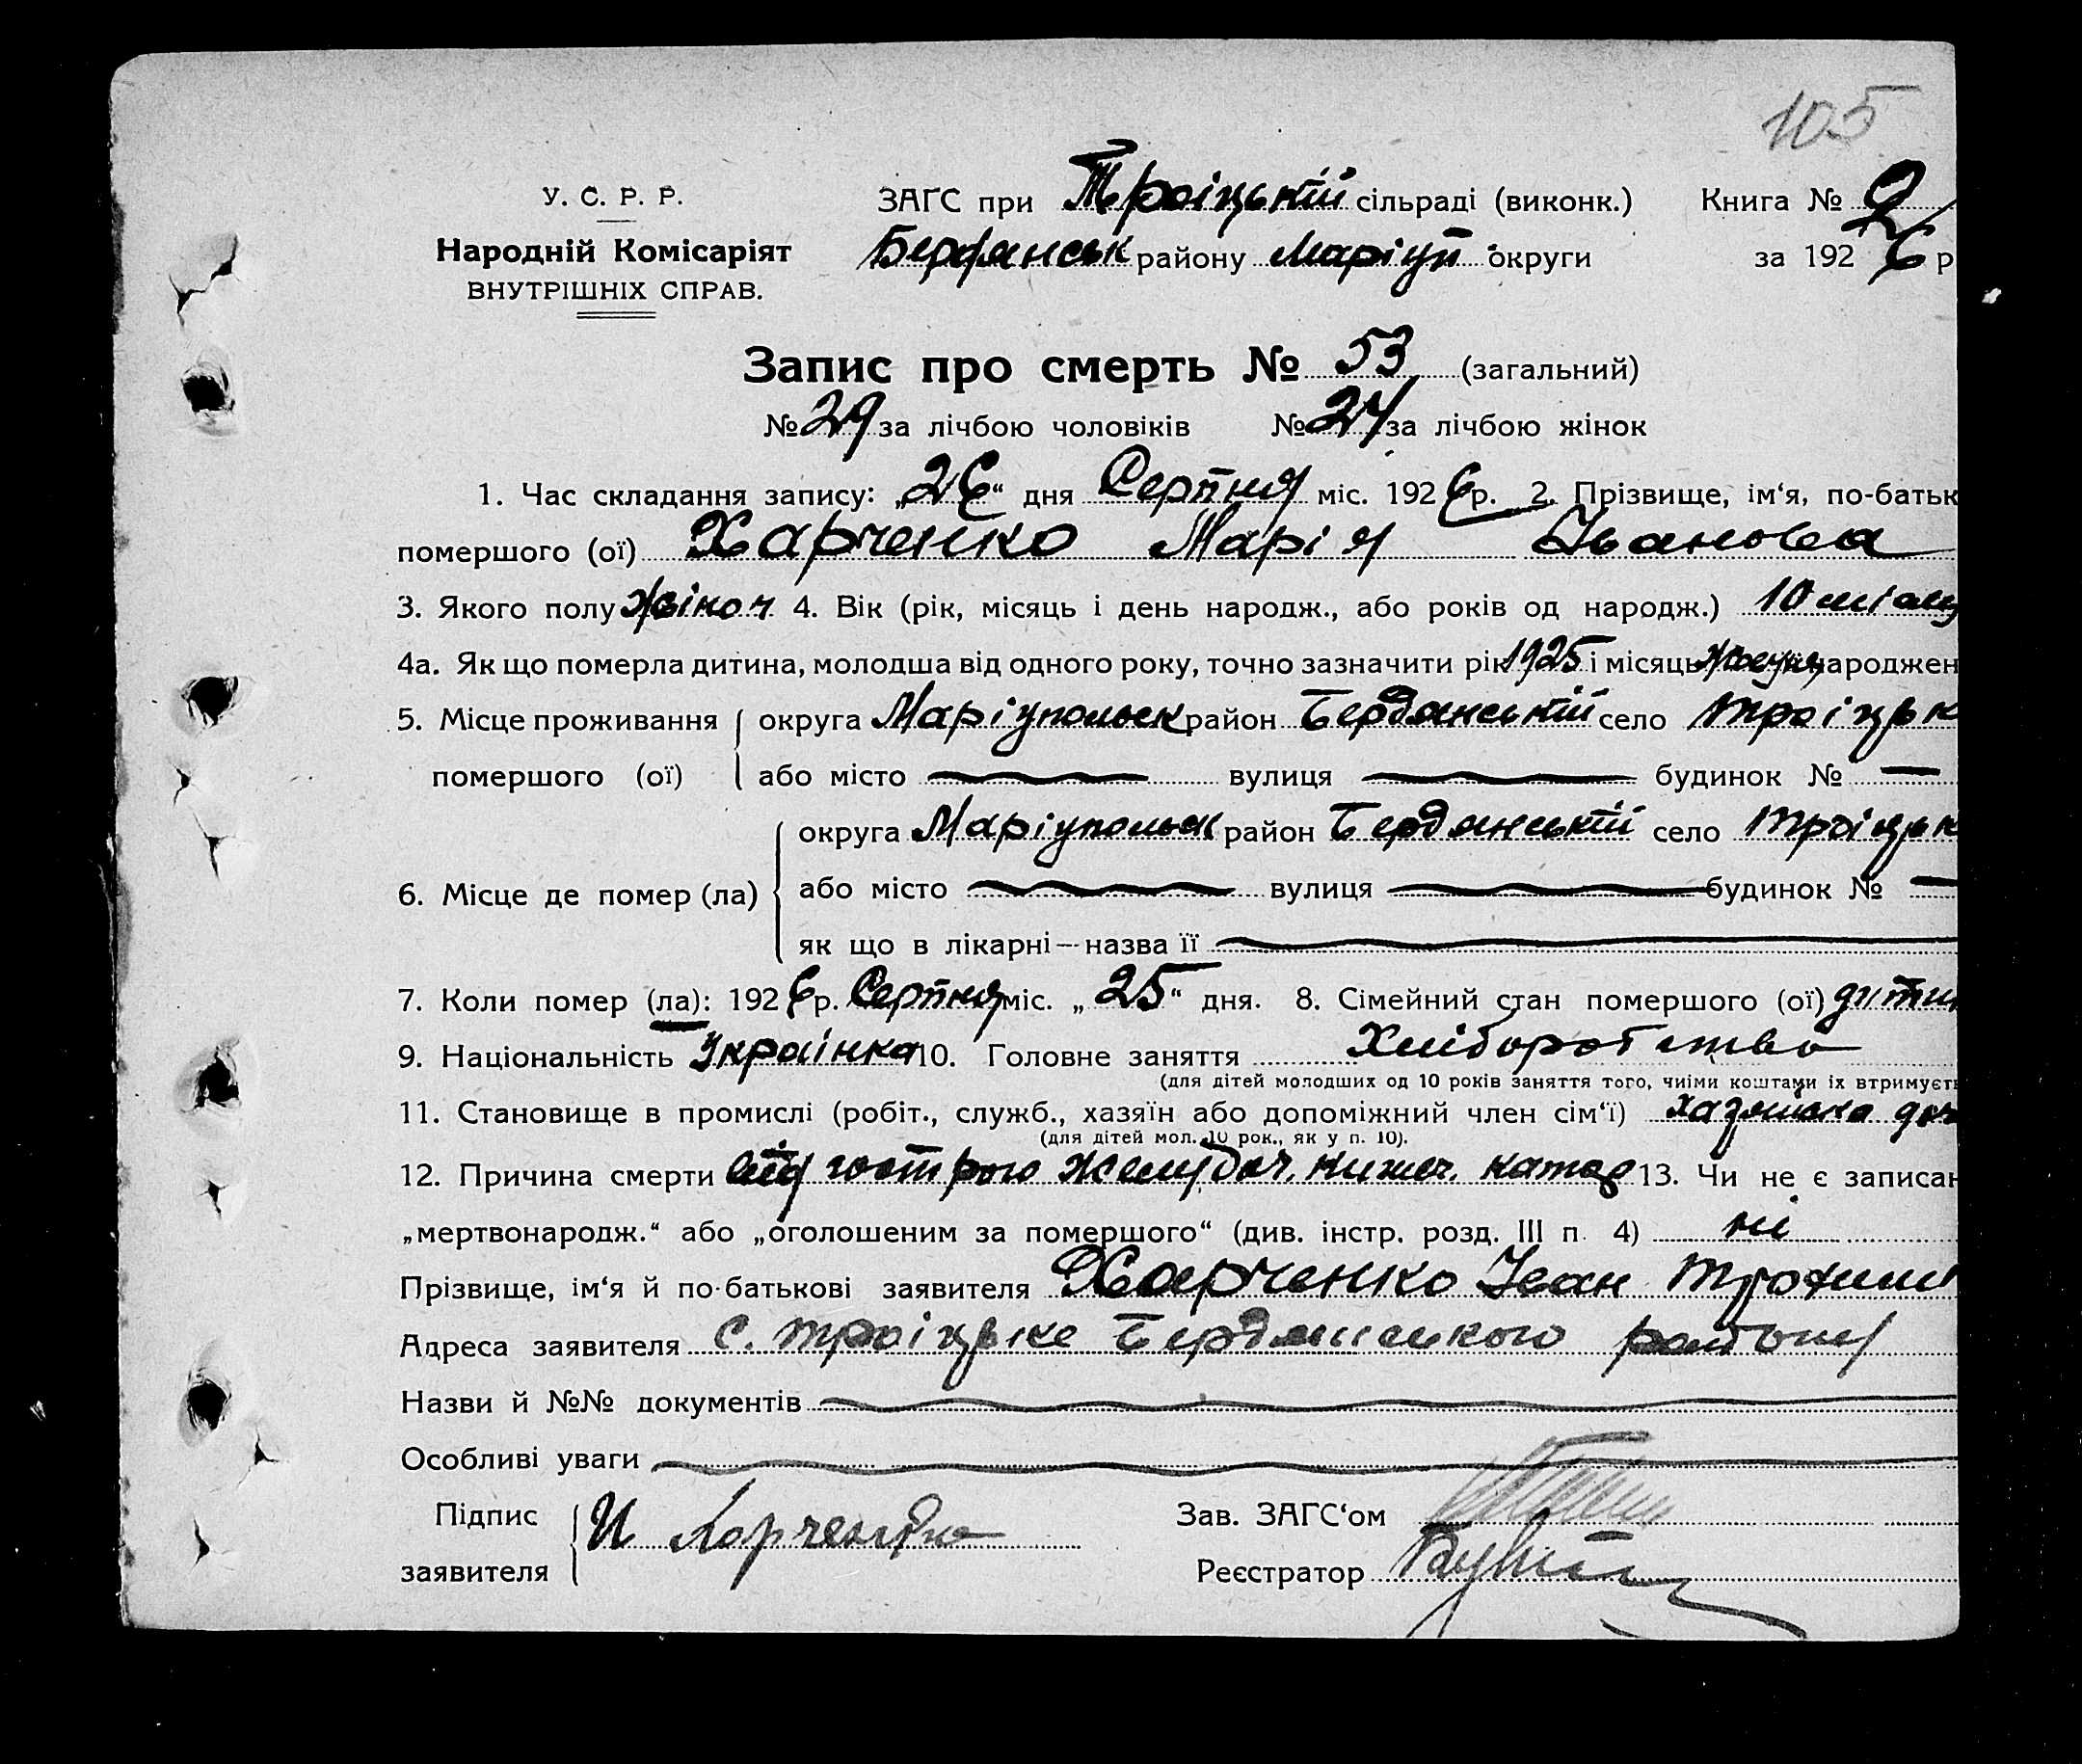 105
У. С. Р. Р.
Народній Комісаріят
ВНУТРІШНІХ СПРАВ.
ЗАГС при Троіцькій сільраді (виконк.) Книга № 2
Бердянськ району Маріуп округи за 1926 р
Запис про смерть № 53 (загальний)
№ 29 за лічбою чоловіків № 24 за лічбою жінок
1. Час складання запису: „26“ дня Серпня міс. 1926 р. 2. Прізвище, ім‘я, по-батьк
помершого (ої) Харченко Марія Іванова
3. Якого полу жіноч 4. Вік (рік, місяць і день народж., або років од народж.) 10 місяц
4а. Як що померла дитина, молодша від одного року, точно зазначити рік 1925 і місяць народжен
5. Місце проживання округа Маріупольськ район Бердянській село Троіцьк
помершого (ої) або місто вулиця будинок №
округа Маріупольськ район Бердянській село Троіцьк
6. Місце де помер (ла) або місто вулиця будинок №
як що в лікарні—назва її
7. Коли помер (ла): 1926 р. Серпня міс. „25“ дня. 8. Сімейний стан помершого (ої) дитин
9. Національність Украінка 10. Головне заняття Хліборобство
(для дітей молодших од 10 років заняття того, чиїми коштами їх втримуєть
11. Становище в промислі (робіт., служб., хазяїн або допоміжний член сім‘ї) хазяїська доч
(для дітей мол. 10 рок., як у п. 10).
12. Причина смерти від гострого желудоч. кишеч. катар 13. Чи не є записан
„мертвонародж.“ або „оголошеним за помершого“ (див. інстр. розд. III п. 4) ні
Прізвище, ім‘я й по-батькові заявителя Харченко Іван Трохим
Адреса заявителя с. Троіцьке Бердянського району
Назви й №№ документів
Особливі уваги
Підпис
заявителя И Харченко
Зав. ЗАГС‘ом
Реєстратор